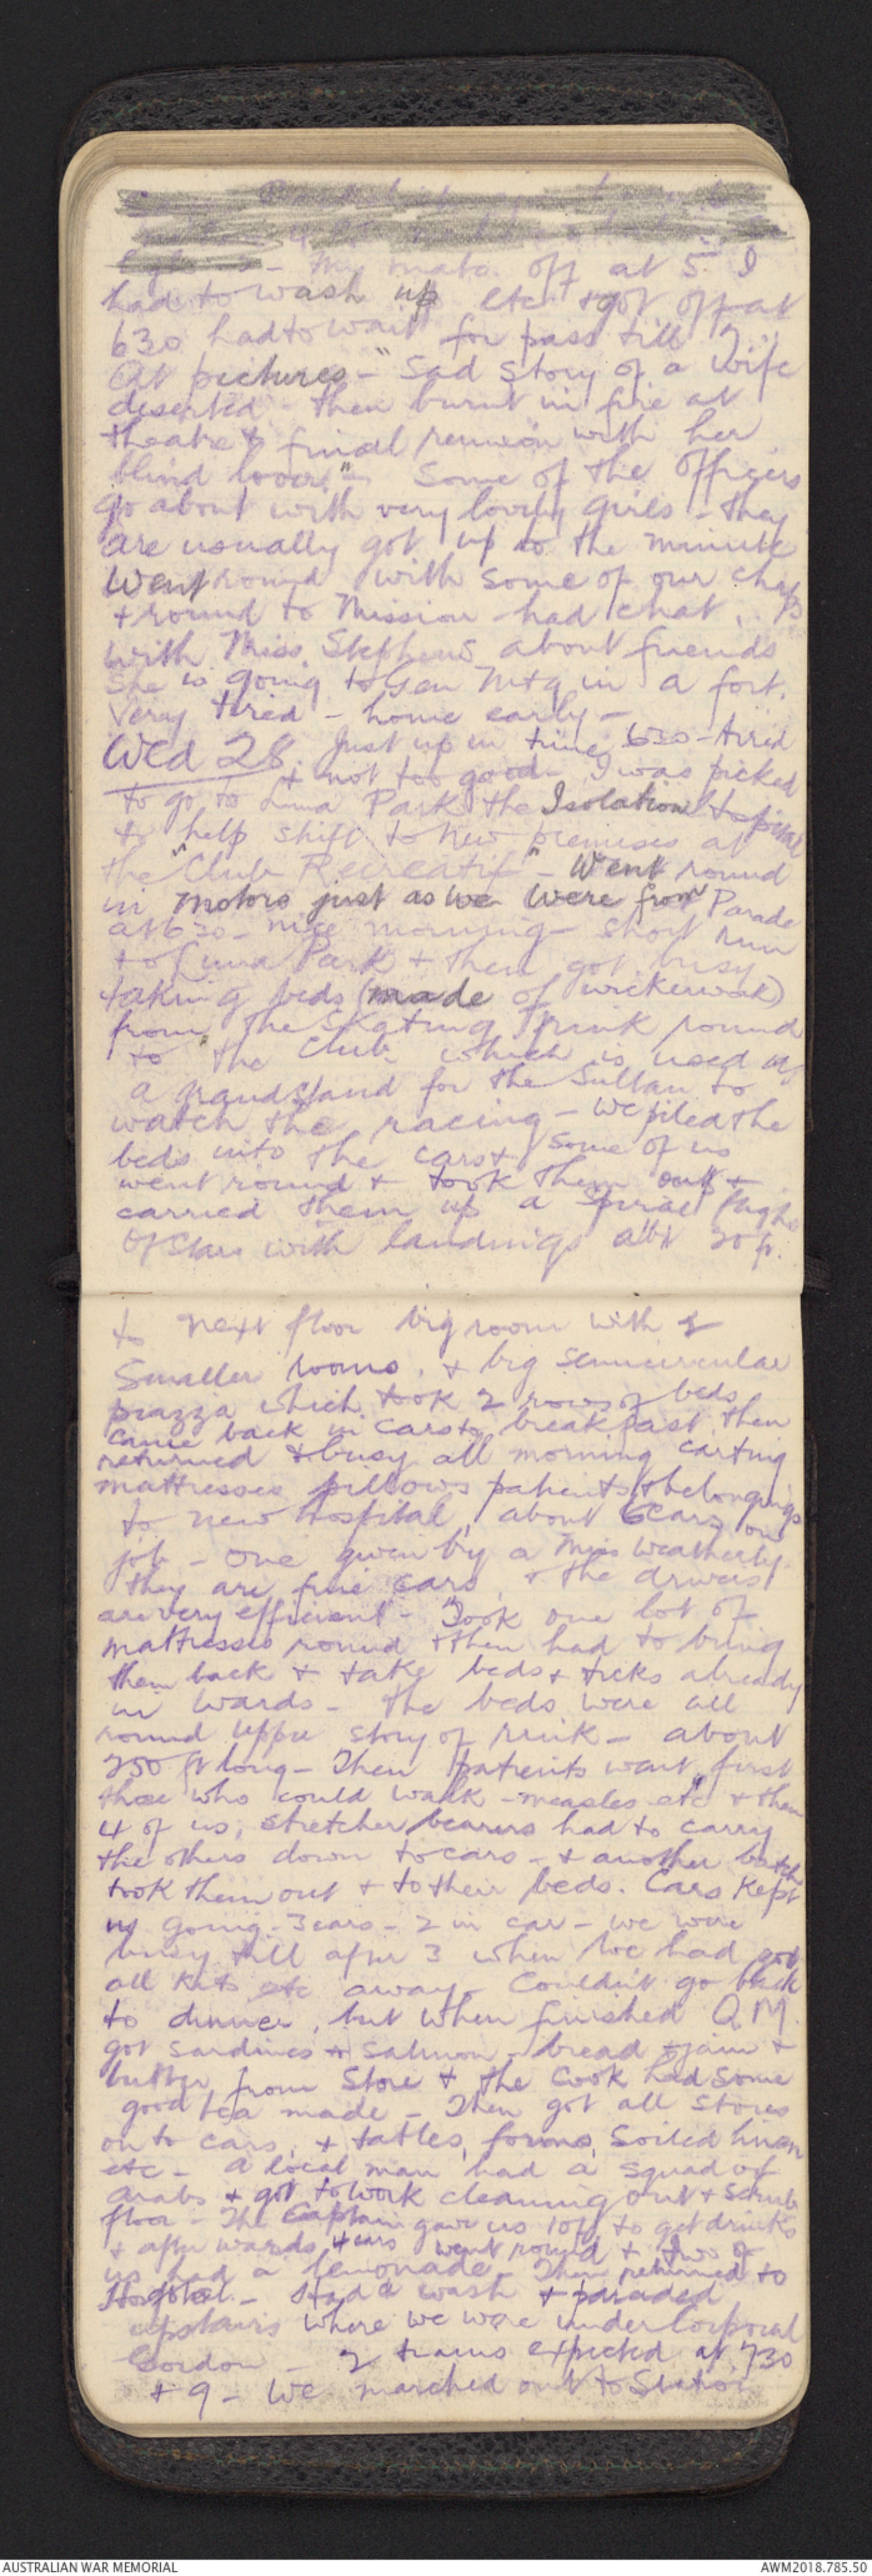 - My mate off at 5 I
had to wash up etc & got off at
630 had to wait for pass till 7.
At pictures - "Sad Story of a wife
deserted then burnt in fire at
theatre & final reunion with her
blind lover" - Some of the Officers
go about with very lovely girls - they
are usually got up to the minute
Went round with some of our chaps
& round to Mission - had chat
with Miss Stephens about friends
She is going to Gen Mtg in a fort.
Very tired - home early -
Wed 28. Just up in time 630 - tired
& not too good - I was picked
to go to Luna Park the Isolation Hospital
to help shift to new premises at
the "Club Recreatif" - Went round
in motors just as we were from Parade
at 630 - nice morning - short run
to Luna Park & then got busy
taking beds (made of wickerwork)
from the Skating Rink round
to the Club which is used as
a grandstand for the Sultan to
watch the racing - We piled the
beds into the cars & some of us
went round & took them out &
carried them up a spiral flight
of stairs with landings abt 20 ft.
to next floor big room with 2
Smaller rooms, & big semicircular
piazza which took 2 rows of beds
came back in cars to breakfast then
returned & busy all morning carting
mattresses pillows patients & belongings
to new hospital, about 6 cars on
job - one given by a Miss Weatherly
they are fine cars, & the drivers
are very efficient - Took one lot of
mattresses round & then had to bring
them back & take beds & ticks already
in wards - The beds were all
round upper story of rink - about
250 ft long - Then patients went first
those who could walk - measles etc & then
4 of us, stretcher bearers had to carry
the others down to cars - & another batch
took them out & to their beds. Cars kept
us going - 3 cars - 2 in car - we were
busy till after 3 when we had got
all kits etc away - Couldn't go back
to dinner, but when finished Q.M.
got sardines & salmon - bread & jam &
butter from Store & the Cook had some
good tea made - Then got all stores
onto cars, & tables, forms, soiled linen
etc - A local man had a squad of
arabs & got to work cleaning out & scrub
floor - The Captain gave us 10/- to get drinks
& afterwards 4 cars went round & two of
us had a lemonade - Then returned to
Hospital - Had a wash & paraded
upstairs where we were under Corporal
Gordon - 2 trains expected at 730
& 9 - We marched out to Station
AUSTRALIAN WAR MEMORIAL
AWM2018.785.50